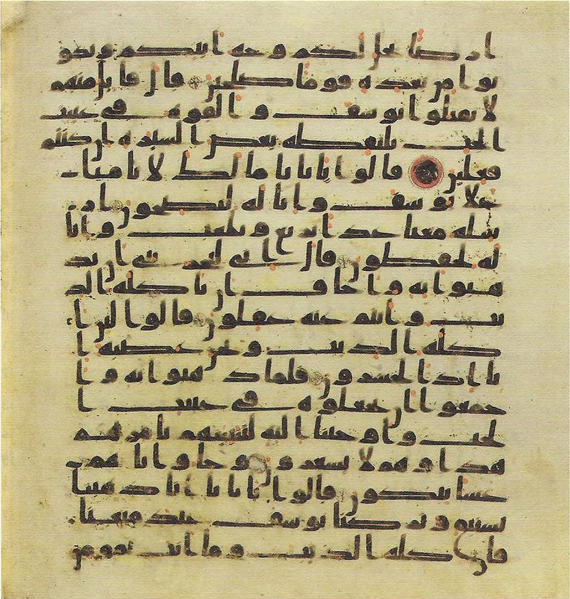 ارضا يخل لكم وجه ابيكم وتكو
نوا من بعده قوما صلحين قال قايل منهم
لا تقتلوا يوسف والقوه في غيبت
الجب يلتقطه بعض السيره ان كنتم
فعلين قالوا يابانا ما لك لا تامنا
على يوسف وانا له لنصحون ار
سله معنا غدا يرتع ويلعب وانا
له لحفظون قال اني ليحزنني ان تذ
هبوا به واخاف ان ياكله الذ
يب وانتم عنه غفلون قالوا لين ا
كله الذيب ونحن عصبه ا
نا اذا لخسرون فلما ذهبوا به وا
جمعوا ان يجعلوه في غيبت ا
لجب واوحينا اليه لتنبينهم بامرهم
هذا وهم لا يشعرون وجاو اباهم
عشا يبكون قالوا يابانا انا ذهبنا
نستبق وتركنا يوسف عند متعنا
فاكله الذيب وما انت بمومن